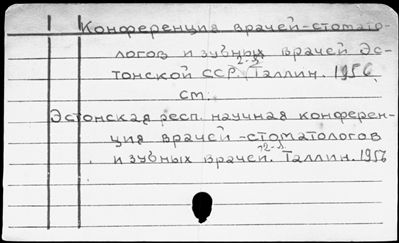 Конференция врачей-стомато-
логов и зубных врачей Эс-
тонской ССР. 2-я. Таллин. 1956.
см.
Эстонская респ. научная конферен-
ция врачей-стоматологов
и зубных врачей. 2-я. Таллин. 1956